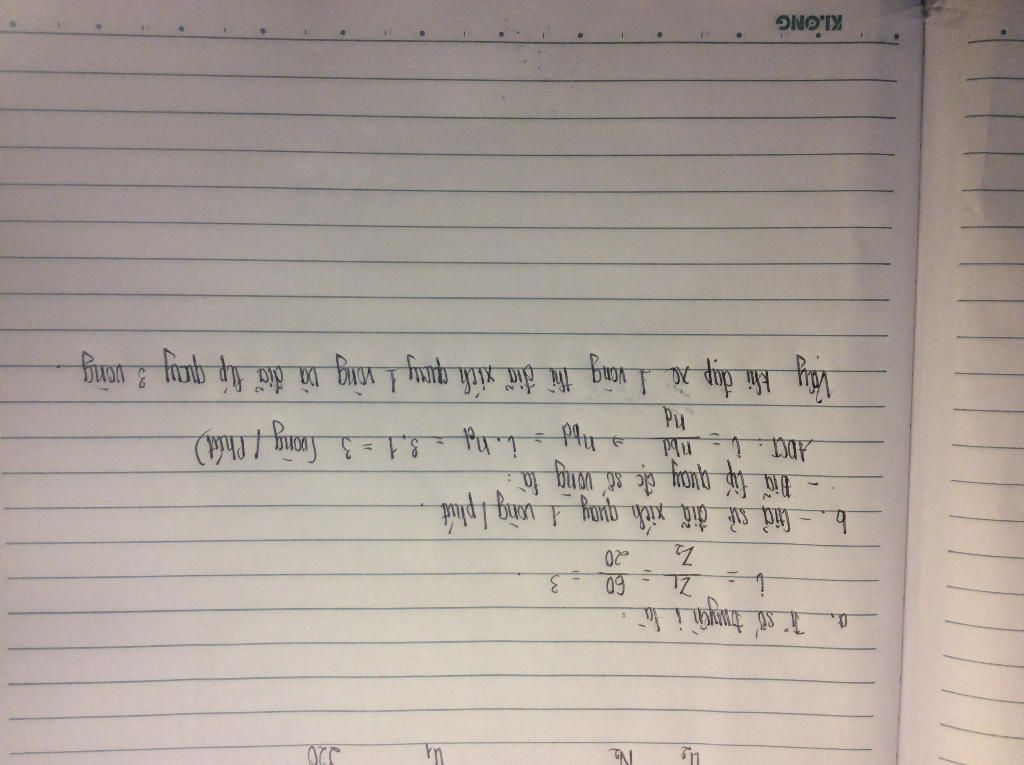 U₂ N₂ U₁ 220
a. Tỉ số truyền i là:
i = Z₁/Z₂ = 60/20 = 3
b. - Giả sử đĩa xích quay 1 vòng / phút
- Đĩa líp quay đc số vòng là:
ADCT: i = nbd/nd => nbd = i.nd = 3.1 = 3 (vòng / Phút)
Vậy khi đạp xe 1 vòng thì đĩa xích quay 1 vòng và đĩa líp quay 3 vòng
KLONG